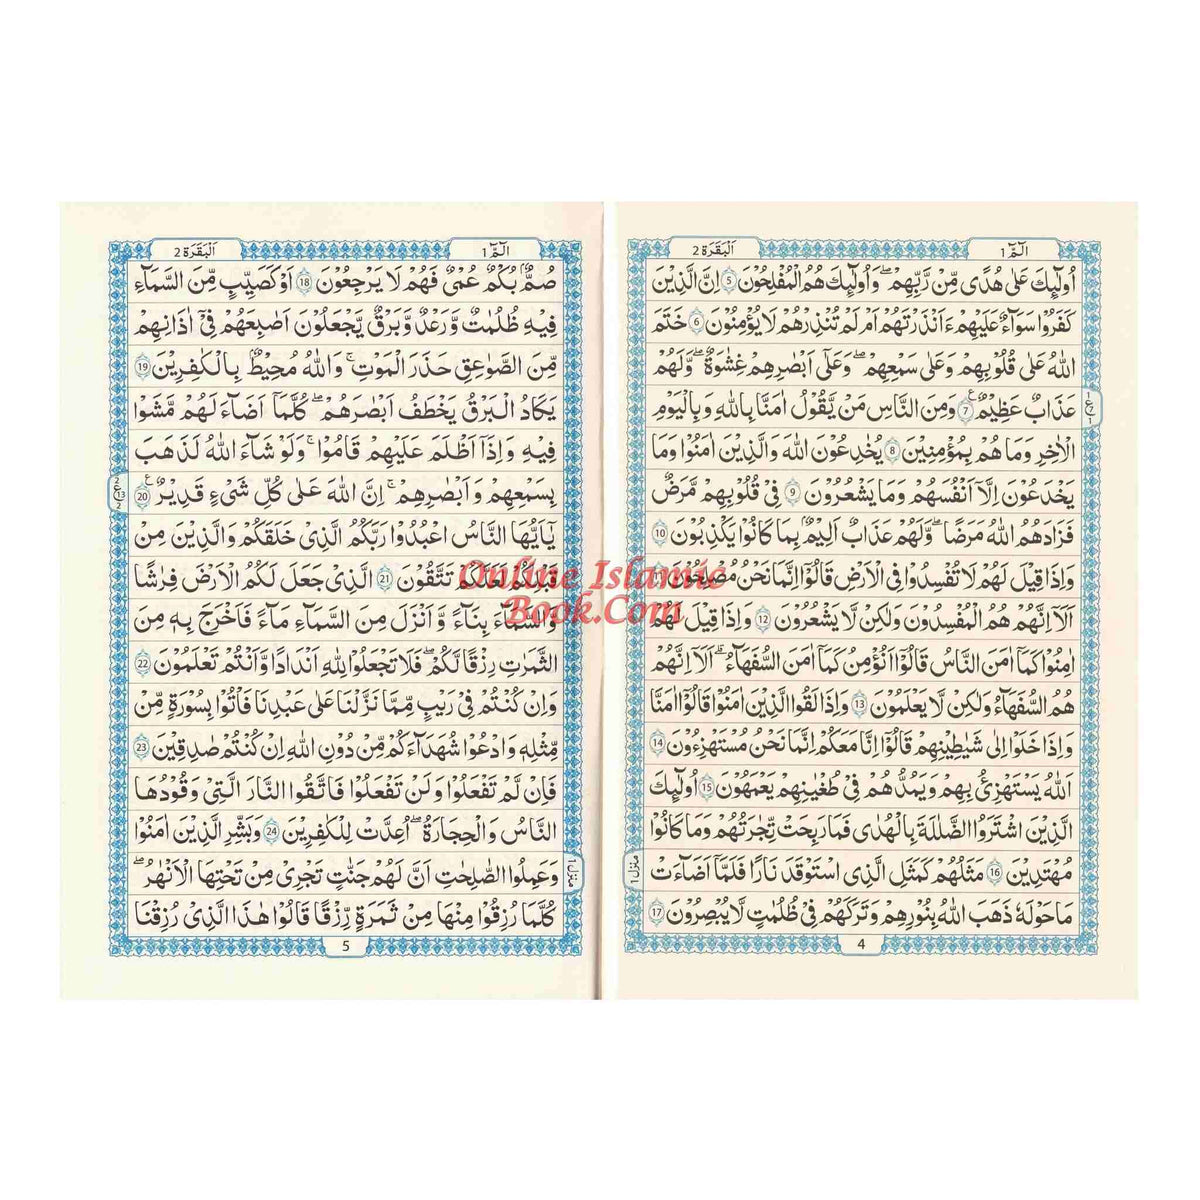 الٓمّٓ 1
اَلْبَقَرَة 2
اُولٰٓئِكَ عَلٰى هُدًى مِّنْ رَّبِّهِمْ ۖ وَاُولٰٓئِكَ هُمُ الْمُفْلِحُوْنَ 5 اِنَّ الَّذِيْنَ
كَفَرُوْا سَوَآءٌ عَلَيْهِمْ ءَاَنْذَرْتَهُمْ اَمْ لَمْ تُنْذِرْهُمْ لَا يُؤْمِنُوْنَ 6 خَتَمَ
اللّٰهُ عَلٰى قُلُوْبِهِمْ وَعَلٰى سَمْعِهِمْ ۖ وَعَلٰٓى اَبْصَارِهِمْ غِشَاوَةٌ ۖ وَّلَهُمْ
عَذَابٌ عَظِيْمٌ 7 وَمِنَ النَّاسِ مَنْ يَّقُوْلُ اٰمَنَّا بِاللّٰهِ وَبِالْيَوْمِ
الْاٰخِرِ وَمَا هُمْ بِمُؤْمِنِيْنَ 8 يُخٰدِعُوْنَ اللّٰهَ وَالَّذِيْنَ اٰمَنُوْا وَمَا
يَخْدَعُوْنَ اِلَّآ اَنْفُسَهُمْ وَمَا يَشْعُرُوْنَ 9 فِيْ قُلُوْبِهِمْ مَّرَضٌ
فَزَادَهُمُ اللّٰهُ مَرَضًا ۖ وَّلَهُمْ عَذَابٌ اَلِيْمٌۢ بِمَا كَانُوْا يَكْذِبُوْنَ 10
وَاِذَا قِيْلَ لَهُمْ لَا تُفْسِدُوْا فِى الْاَرْضِ قَالُوْٓا اِنَّمَا نَحْنُ مُصْلِحُوْنَ
اَلَآ اِنَّهُمْ هُمُ الْمُفْسِدُوْنَ وَلٰكِنْ لَّا يَشْعُرُوْنَ 12 وَاِذَا قِيْلَ لَهُمْ
اٰمِنُوْا كَمَآ اٰمَنَ النَّاسُ قَالُوْٓا اَنُؤْمِنُ كَمَآ اٰمَنَ السُّفَهَآءُ ۗ اَلَآ اِنَّهُمْ
هُمُ السُّفَهَآءُ وَلٰكِنْ لَّا يَعْلَمُوْنَ 13 وَاِذَا لَقُوا الَّذِيْنَ اٰمَنُوْا قَالُوْٓا اٰمَنَّا
وَاِذَا خَلَوْا اِلٰى شَيٰطِيْنِهِمْ قَالُوْٓا اِنَّا مَعَكُمْ اِنَّمَا نَحْنُ مُسْتَهْزِءُوْنَ 14
اَللّٰهُ يَسْتَهْزِئُ بِهِمْ وَيَمُدُّهُمْ فِيْ طُغْيَانِهِمْ يَعْمَهُوْنَ 15 اُولٰٓئِكَ
الَّذِيْنَ اشْتَرَوُا الضَّلٰلَةَ بِالْهُدٰى فَمَا رَبِحَتْ تِّجَارَتُهُمْ وَمَا كَانُوْا
مُهْتَدِيْنَ 16 مَثَلُهُمْ كَمَثَلِ الَّذِى اسْتَوْقَدَ نَارًا فَلَمَّآ اَضَآءَتْ
مَا حَوْلَهٗ ذَهَبَ اللّٰهُ بِنُوْرِهِمْ وَتَرَكَهُمْ فِيْ ظُلُمٰتٍ لَّا يُبْصِرُوْنَ 17
1 ع 7 1
منزل 1
4
الٓمّٓ 1
اَلْبَقَرَة 2
صُمٌّۢ بُكْمٌ عُمْيٌ فَهُمْ لَا يَرْجِعُوْنَ 18 اَوْ كَصَيِّبٍ مِّنَ السَّمَآءِ
فِيْهِ ظُلُمٰتٌ وَّرَعْدٌ وَّبَرْقٌ يَجْعَلُوْنَ اَصَابِعَهُمْ فِيْٓ اٰذَانِهِمْ
مِّنَ الصَّوَاعِقِ حَذَرَ الْمَوْتِ ۚ وَاللّٰهُ مُحِيْطٌۢ بِالْكٰفِرِيْنَ 19
يَكَادُ الْبَرْقُ يَخْطَفُ اَبْصَارَهُمْ ۖ كُلَّمَآ اَضَآءَ لَهُمْ مَّشَوْا
فِيْهِ وَاِذَآ اَظْلَمَ عَلَيْهِمْ قَامُوْا ۚ وَلَوْ شَآءَ اللّٰهُ لَذَهَبَ
بِسَمْعِهِمْ وَاَبْصَارِهِمْ ۚ اِنَّ اللّٰهَ عَلٰى كُلِّ شَيْءٍ قَدِيْرٌ 20
يٰٓاَيُّهَا النَّاسُ اعْبُدُوْا رَبَّكُمُ الَّذِيْ خَلَقَكُمْ وَالَّذِيْنَ مِنْ
قَبْلِكُمْ لَعَلَّكُمْ تَتَّقُوْنَ 21 الَّذِيْ جَعَلَ لَكُمُ الْاَرْضَ فِرَاشًا
وَّالسَّمَآءَ بِنَآءً وَّاَنْزَلَ مِنَ السَّمَآءِ مَآءً فَاَخْرَجَ بِهٖ مِنَ
الثَّمَرٰتِ رِزْقًا لَّكُمْ ۖ فَلَا تَجْعَلُوْا لِلّٰهِ اَنْدَادًا وَّاَنْتُمْ تَعْلَمُوْنَ 22
وَاِنْ كُنْتُمْ فِيْ رَيْبٍ مِّمَّا نَزَّلْنَا عَلٰى عَبْدِنَا فَأْتُوْا بِسُوْرَةٍ مِّنْ
مِّثْلِهٖ وَادْعُوْا شُهَدَآءَكُمْ مِّنْ دُوْنِ اللّٰهِ اِنْ كُنْتُمْ صٰدِقِيْنَ 23
فَاِنْ لَّمْ تَفْعَلُوْا وَلَنْ تَفْعَلُوْا فَاتَّقُوا النَّارَ الَّتِيْ وَقُوْدُهَا
النَّاسُ وَالْحِجَارَةُ ۖ اُعِدَّتْ لِلْكٰفِرِيْنَ 24 وَبَشِّرِ الَّذِيْنَ اٰمَنُوْا
وَعَمِلُوا الصّٰلِحٰتِ اَنَّ لَهُمْ جَنّٰتٍ تَجْرِيْ مِنْ تَحْتِهَا الْاَنْهٰرُ ۖ
كُلَّمَا رُزِقُوْا مِنْهَا مِنْ ثَمَرَةٍ رِّزْقًا قَالُوْا هٰذَا الَّذِيْ رُزِقْنَا
2 ع 13 2
منزل 1
5
Online Islamic
Book.Com